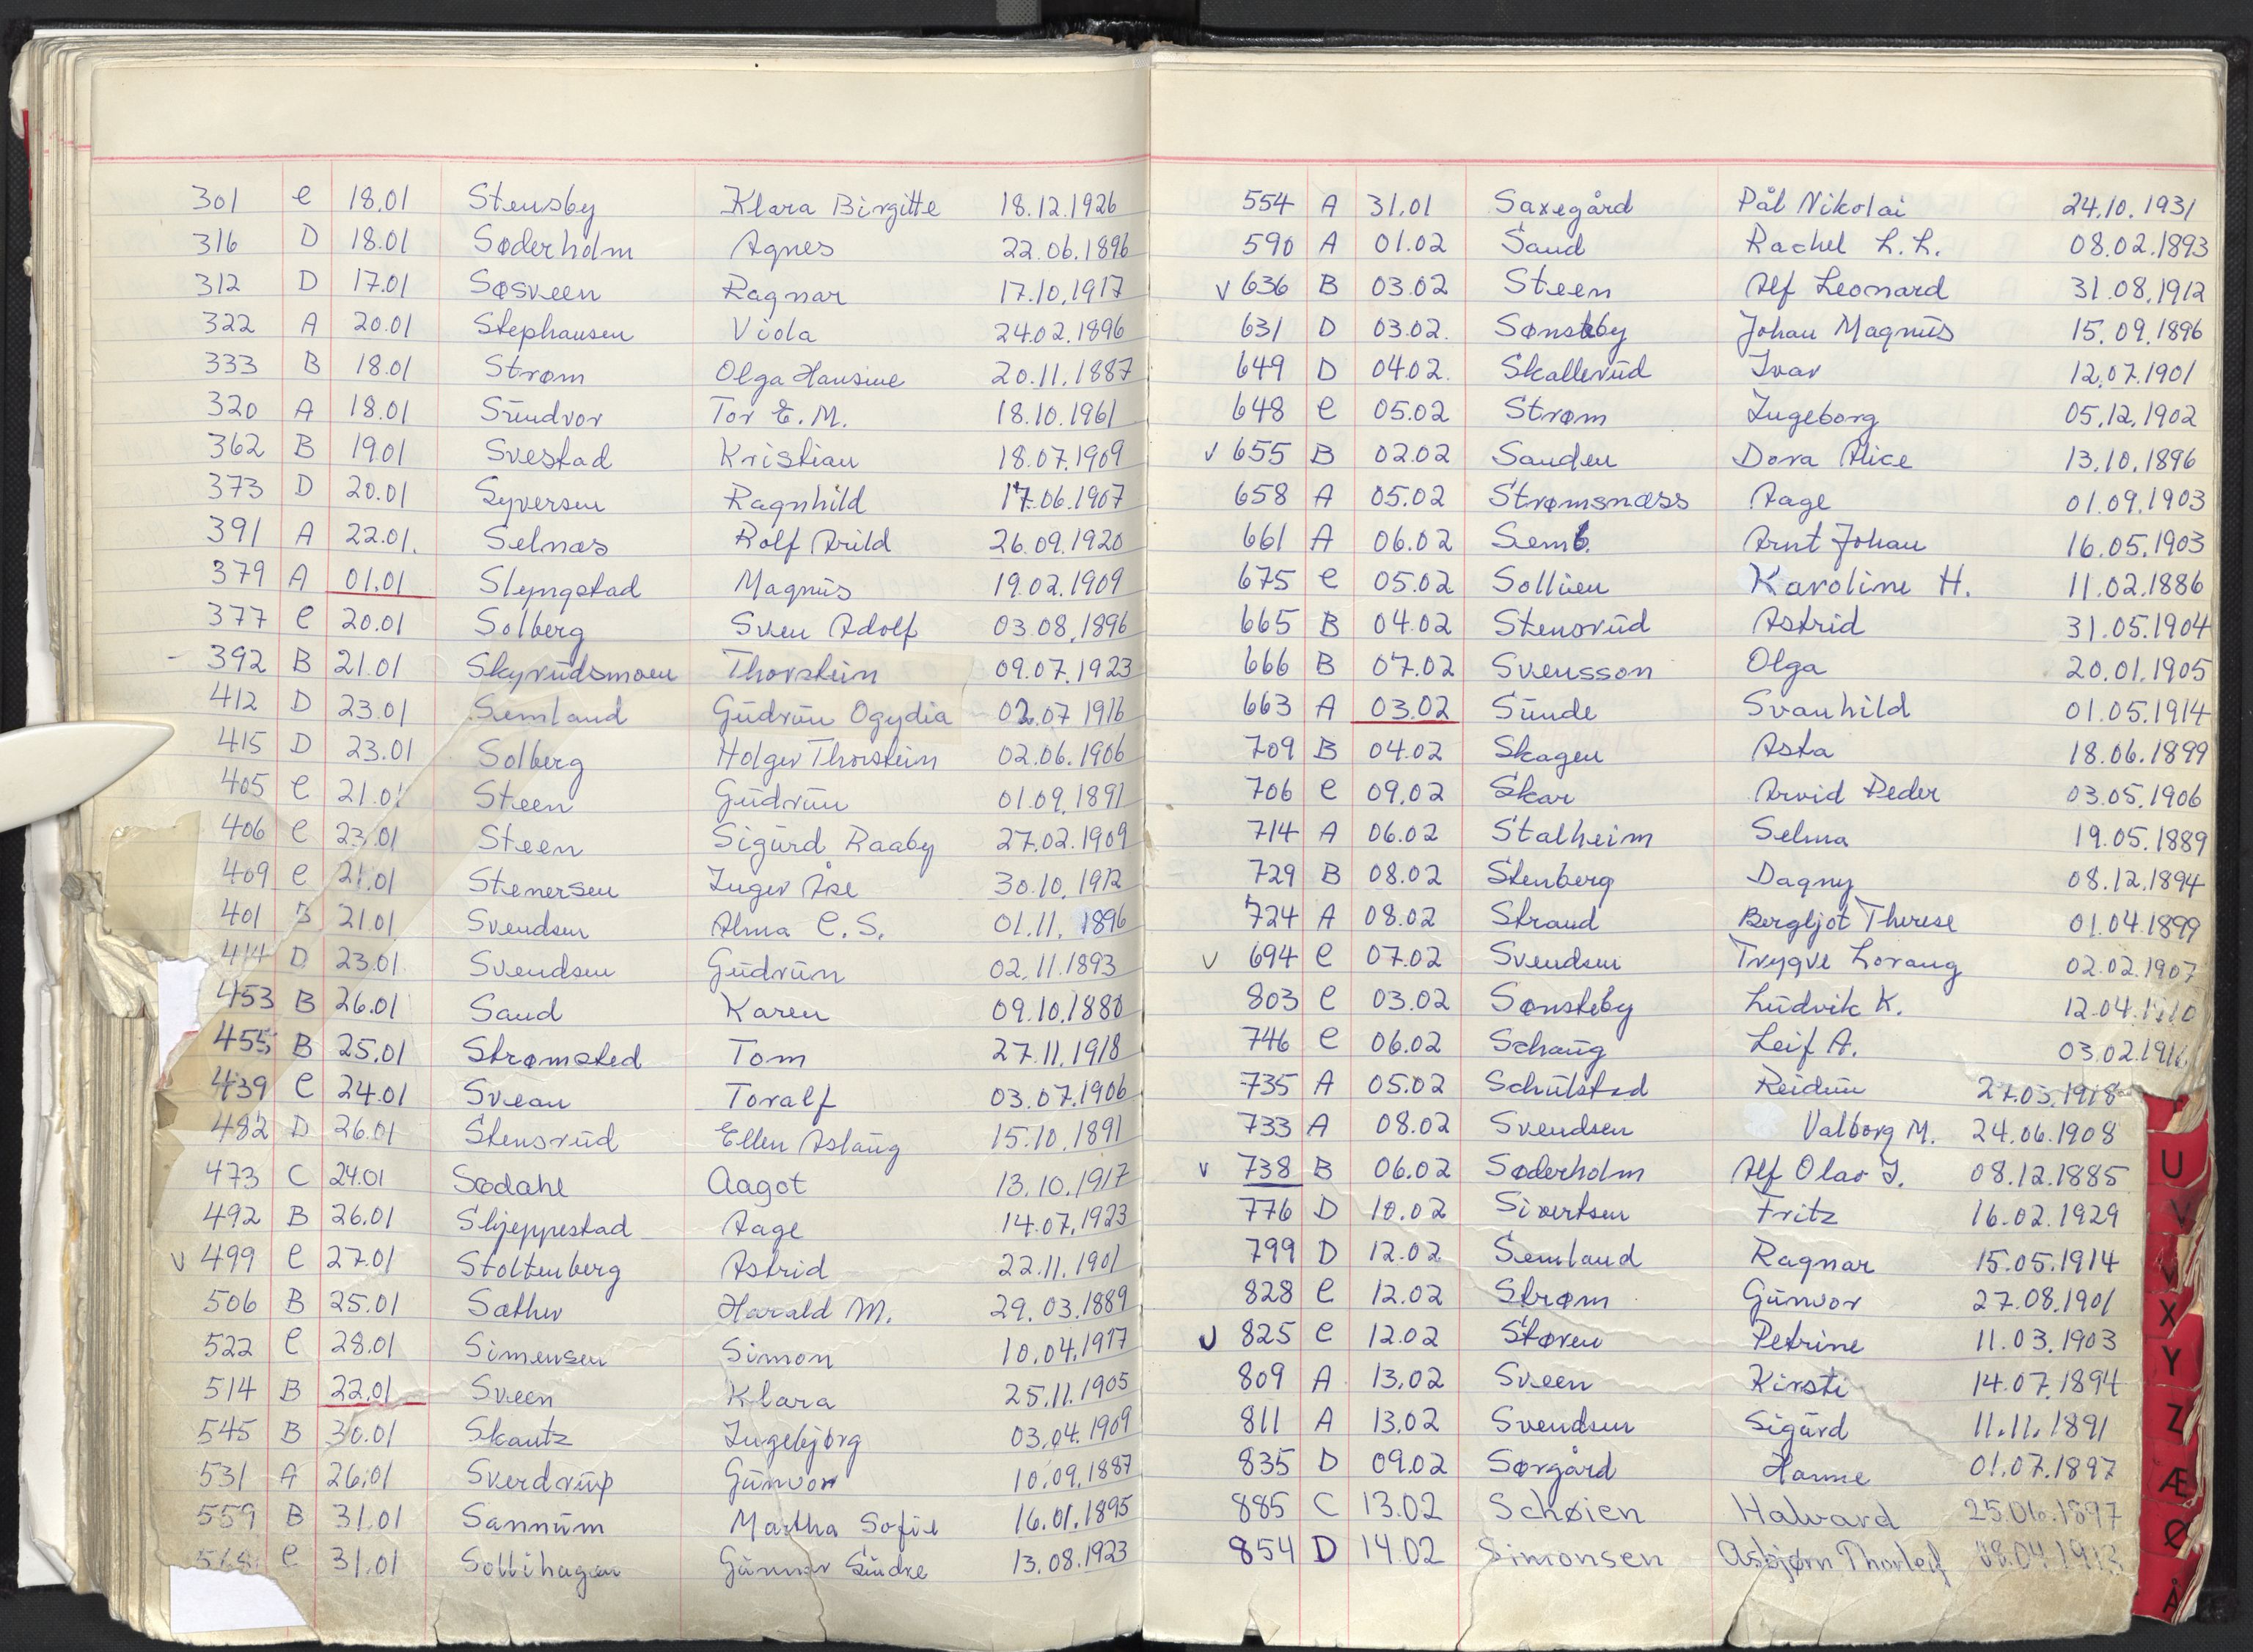 301 C 18.01 Stensby Klara Birgitte 18.12.1926
316 D 18.01 Søderholm Agnes 22.06.1896
312 D 17.01 Søsveen Ragnar 17.10.1917
322 A 20.01 Stephansen Viola 24.02.1896
333 B 18.01 Strøm Olga Hansine 20.11.1887
320 A 18.01 Sundvor Tor E. M. 18.10.1961
362 B 19.01 Svestad Kristian 18.07.1909
373 D 20.01 Syversen Ragnhild 17.06.1907
391 A 22.01. Selnæs Rolf Arild 26.09.1920
379 A 01.01 Slyngstad Magnus 19.02.1909
377 C 20.01 Solberg Sven Adolf 03.08.1896
- 392 B 21.01 Skyrudsmoen Thorstein 09.07.1923
412 D 23.01 Semland Gudrun Ogydia 02.07 1916
415 D 23.01 Solberg Holger Thorstein 02.06.1906
405 C 21.01 Steen Gudrun 01.09.1891
406 C 23.01 Steen Sigurd Raaby 27.02.1909
409 C 21.01 Stenersen Inger Åse 30.10.1912
401 B 21.01 Svendsen Alma C. S. 01.11.1896
414 D 23.01 Svendsen Gudrun 02.11.1893
453 B 26.01 Sand Karen 09.10.1880
455 B 25.01 Strømsted Tom 27.11.1918
439 C 24.01 Svean Toralf 03.07.1906
482 D 26.01 Stensrud Ellen Aslaug 15.10.1891
473 C 24.01 Sødahl Aagot 13.10.1917
492 B 26.01 Skjeppestad Aage 14.07.1923
v 499 C 27.01 Stoltenberg Astrid 22.11.1901
506 B 25.01 Sæther Harald M. 29.03.1889
522 C 28.01 Simensen Simon 10.04.1917
514 B 22.01 Sveen Klara 25.11.1905
545 B 30.01 Skantz Ingebjørg 03.04.1909
531 A 26.01 Sverdrup Gunvor 10.09.1887
559 B 31.01 Sannum Martha Sofie 16.01.1895
C 31.01 Sollihagen Gunnar Sindre 13.08.1923
554 A 31.01 Saxegård Pål Nikolai 24.10.1931
590 A 01.02 Sand Rachel L. L. 08.02.1893
v 636 B 03.02 Steen Alf Leonard 31.08.1912
631 D 03.02. Sønsteby Johan Magnus 15.09.1896
649 D 04.02. Skallerud Ivar 12.07.1901
648 C 05.02 Strøm Ingeborg 05.12.1902
v 655 B 02.02 Sanden Dora Alice 13.10.1896
658 A 05.02 Strømsnæss Aage 01.09.1903
661 A 06.02 Semb. Arnt Johan 16.05.1903
675 C 05.02 Sollien Karoline H. 11.02.1886
665 B 04.02 Stensrud Astrid 31.05.1904
666 B 07.02 Svensson Olga 20.01.1905
663 A 03.02 Sunde Svanhild 01.05.1914
709 B 04.02 Skagen Asta 18.06.1899
706 C 09.02 Skar Arvid Peder 03.05.1906
714 A 06.02 Stalheim Selma 19.05.1889
729 B 08.02 Stenberg Dagny 08.12.1894
724 A 08.02 Strand Bergljot Therese 01.04.1899
v 694 C 07.02 Svendsen Trygve Lorang 02.02.1907
803 C 03.02 Sønsteby Ludvik K. 12.04.1910
746 C 06.02 Schaug Leif A. 03.02.191
735 A 05.02 Schulstad Reidun 27.03.1918
733 A 08.02 Svendsen Valborg M. 24.06.1908
v 738 B 06.02 Søderholm Alf Olav J. 08.12.1885
776 D 10.02 Sivertsen Fritz 16.02.1929
799 D 12.02 Semland Ragnar 15.05.1914
828 C 12.02 Strøm Gunvor 27.08.1901
v 825 C 12.02 Støren Petrine 11.03.1903
809 A 13.02 Sveen Kirsti 14.07.1894
811 A 13.02 Svendsen Sigurd 11.11.1891
835 D 09.02 Sørgård Hanne 01.07.1897
885 C 13.02 Schøien Halvard 25.06.1897
854 D 14.02 Simonsen Asbjørn Thorleif
U
V
X
Y
Z
Æ
Ø
Å